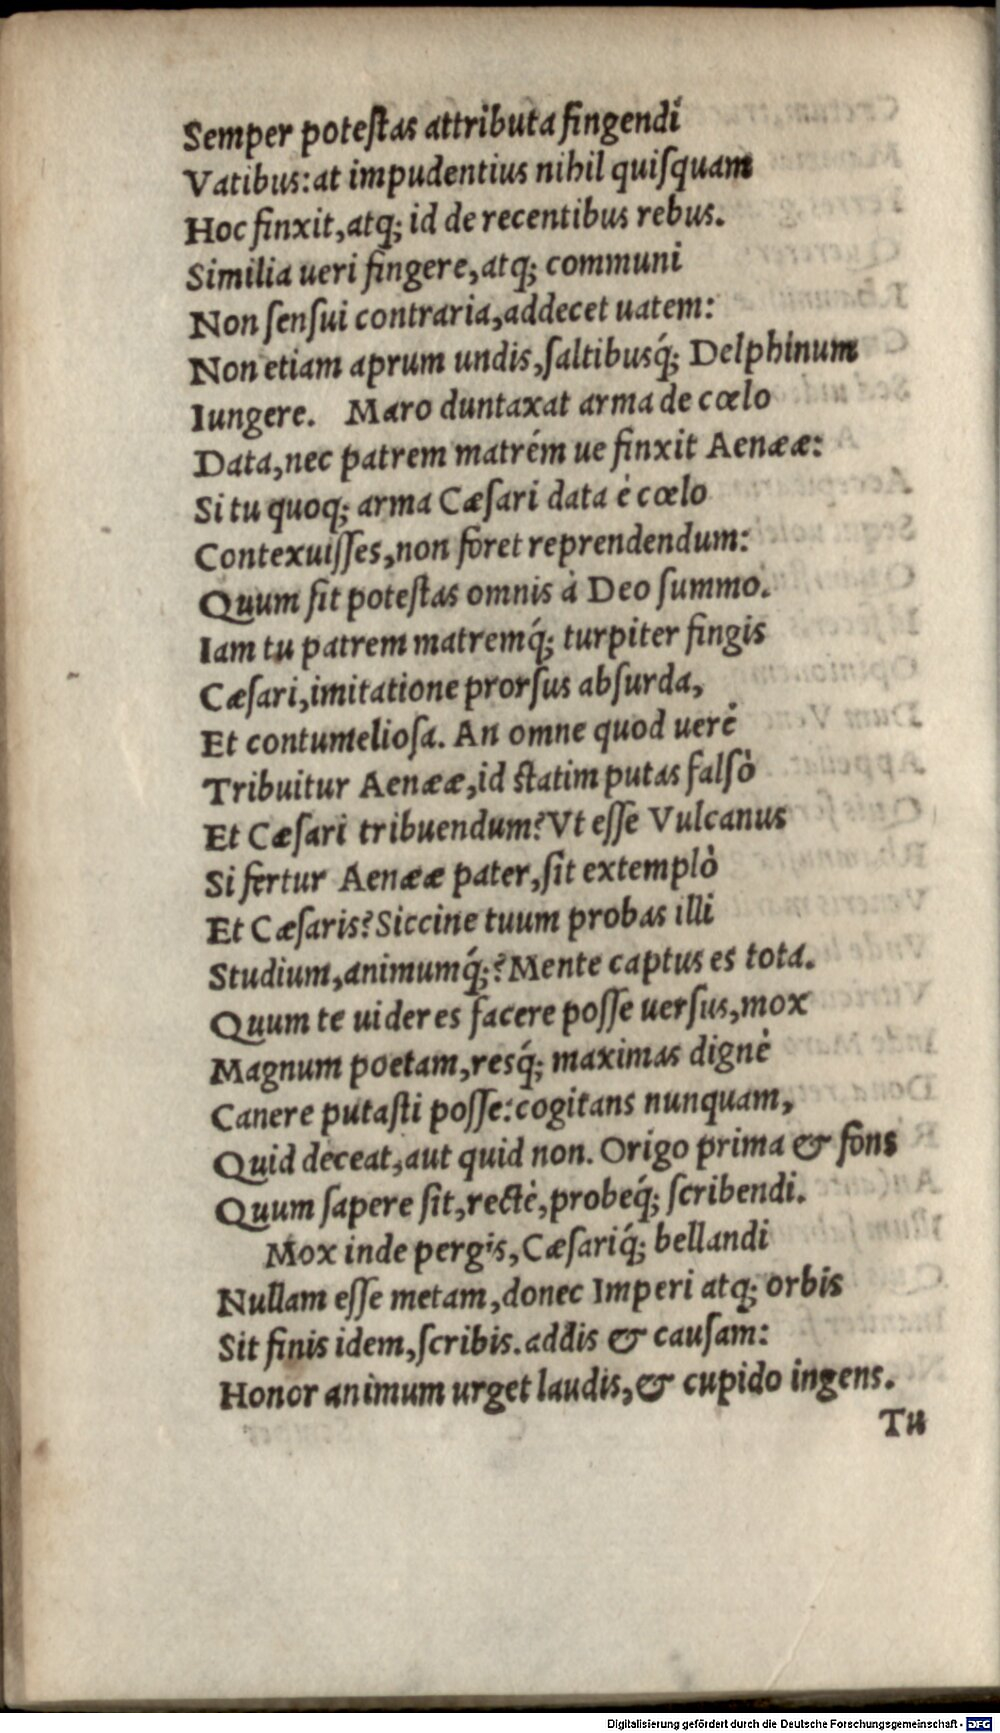 Semper poteſtas attributa fingendi
Vatibus: at impudentius nihil quiſquam
Hoc finxit, atq; id de recentibus rebus.
Similia ueri fingere, atq; communi
Non ſenſui contraria, addecet uatem:
Non etiam aprum undis, ſaltibusq́; Delphinum
Iungere. Maro duntaxat arma de cœlo
Data, nec patrem matrém ue finxit Aenææ:
Si tu quoq; arma Cæſari data è cœlo
Contexuiſſes, non foret reprendendum:
Quum ſit poteſtas omnis à Deo ſummo.
Iam tu patrem matremq́; turpiter fingis
Cæſari, imitatione prorſus abſurda,
Et contumelioſa. An omne quod uerè
Tribuitur Aenææ, id ſtatim putas falſò
Et Cæſari tribuendum? Vt eſſe Vulcanus
Si fertur Aenææ pater, ſit extemplò
Et Cæſaris? Siccine tuum probas illi
Studium, animumq́;? Mente captus es tota.
Quum te uideres facere poſſe uerſus, mox
Magnum poetam, resq́; maximas dignè
Canere putaſti poſſe: cogitans nunquam,
Quid deceat, aut quid non. Origo prima & fons
Quum ſapere ſit, rectè, probeq́; ſcribendi.
Mox inde pergis, Cæſariq́; bellandi
Nullam eſſe metam, donec Imperi atq; orbis
Sit finis idem, ſcribis. addis & cauſam:
Honor animum urget laudis, & cupido ingens.
Tu
Digitalisierung gefördert durch die Deutsche Forschungsgemeinschaft - DFG